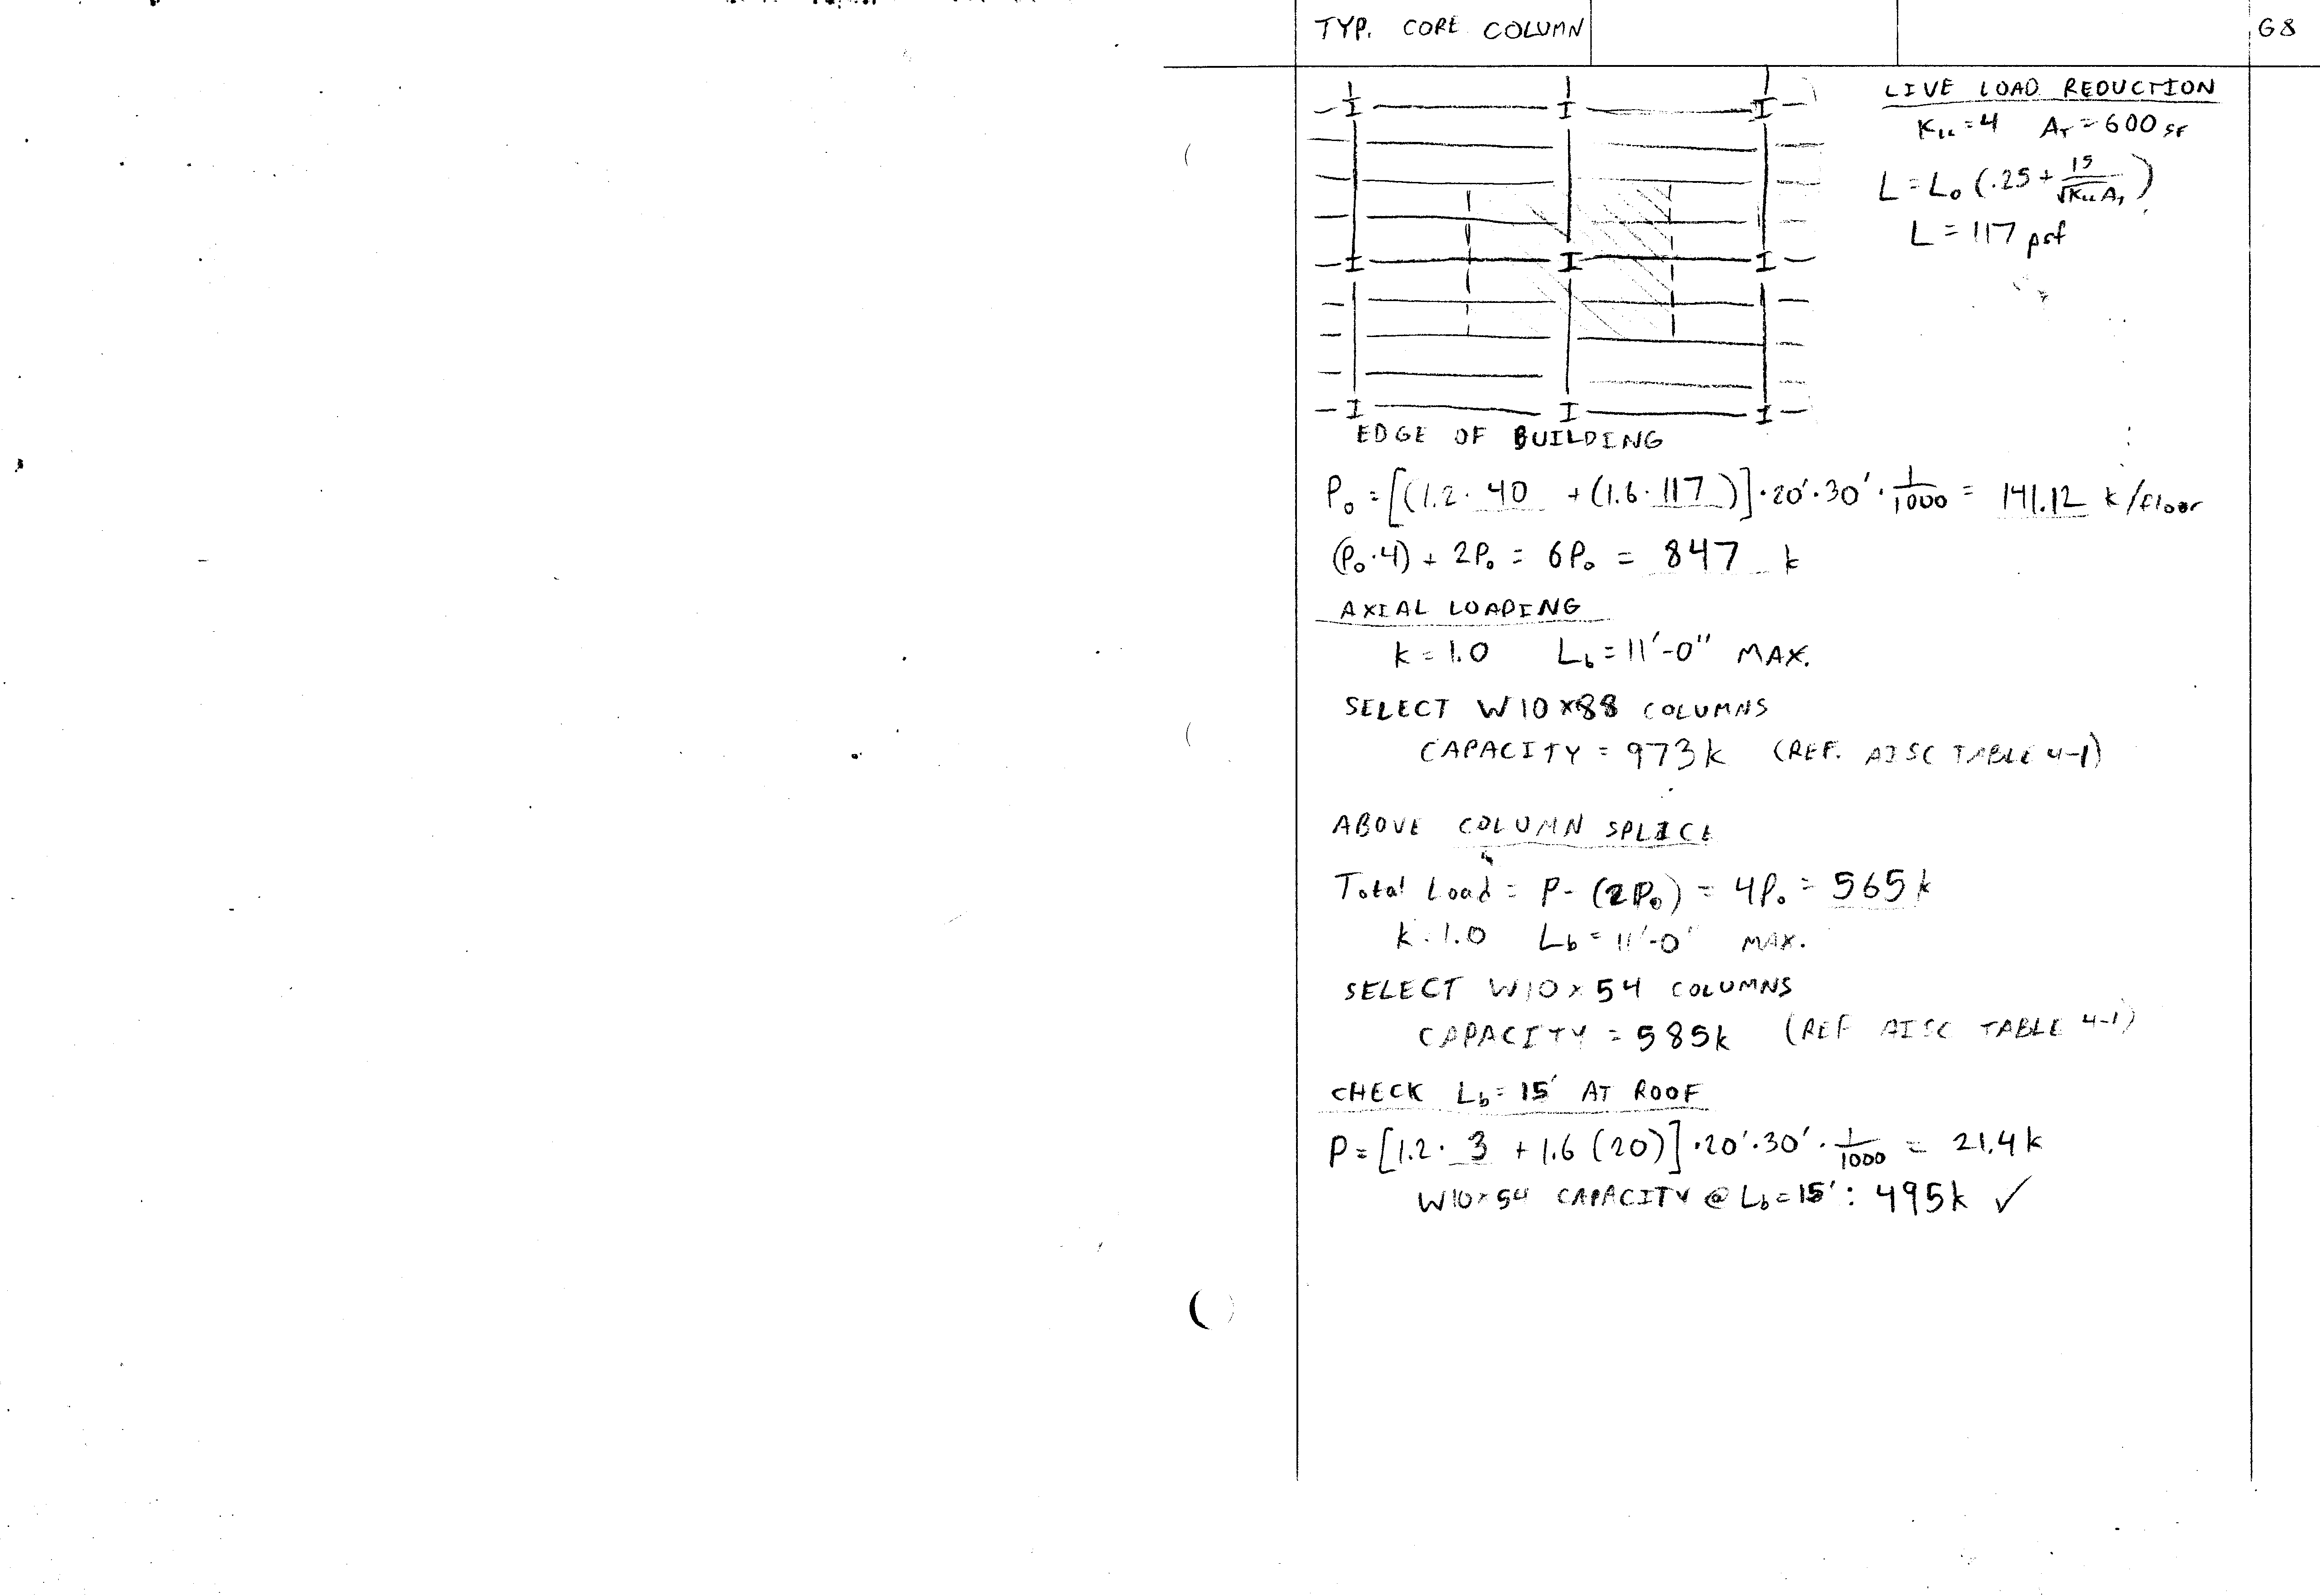 TYP. CORE COLUMN
G8
LIVE LOAD REDUCTION
KLL = 4 AT = 600 SF
L = L0 (.25 + 15/√KLL AT)
L = 117 psf
EDGE OF BUILDING
P0 = [(1.2 · 40 + (1.6 · 117)] · 20' · 30' · 1/1000 = 141.12 k/floor
(P0 · 4) + 2P0 = 6P0 = 847 k
AXIAL LOADING
k = 1.0 Lb = 11'-0" MAX.
SELECT W10x88 COLUMNS
CAPACITY = 973k (REF. AISC TABLE 4-1)
ABOVE COLUMN SPLICE
Total Load = P - (2P0) = 4P0 = 565 k
k = 1.0 Lb = 11'-0" MAX.
SELECT W10x54 COLUMNS
CAPACITY = 585k (REF AISC TABLE 4-1)
CHECK Lb = 15' AT ROOF
P = [1.2 · 3 + 1.6 (20)] · 20' · 30' · 1/1000 = 21.4 k
W10x54 CAPACITY @ Lb = 15' : 495k ✓